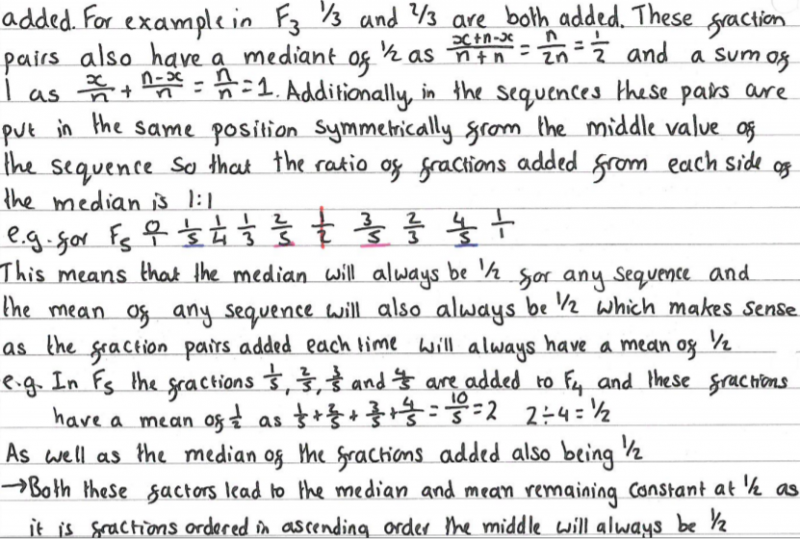 added. For example in F₃ 1/3 and 2/3 are both added. These fraction
pairs also have a mediant of 1/2 as (x+n-x)/(n+n) = n/2n = 1/2 and a sum of
1 as x/n + (n-x)/n = n/n = 1. Additionally, in the sequences these pairs are
put in the same position symmetrically from the middle value of
the sequence so that the ratio of fractions added from each side of
the median is 1:1
e.g. for F₅ 0/1 1/5 1/4 1/3 2/5 1/2 3/5 2/3 4/5 1/1
This means that the median will always be 1/2 for any sequence and
the mean of any sequence will also always be 1/2 which makes sense
as the fraction pairs added each time will always have a mean of 1/2
e.g. In F₅ the fractions 1/5, 2/5, 3/5 and 4/5 are added to F₄ and these fractions
have a mean of 1/2 as 1/5 + 2/5 + 3/5 + 4/5 = 10/5 = 2 2÷4 = 1/2
As well as the median of the fractions added also being 1/2
→Both these factors lead to the median and mean remaining constant at 1/2 as
it is fractions ordered in ascending order the middle will always be 1/2